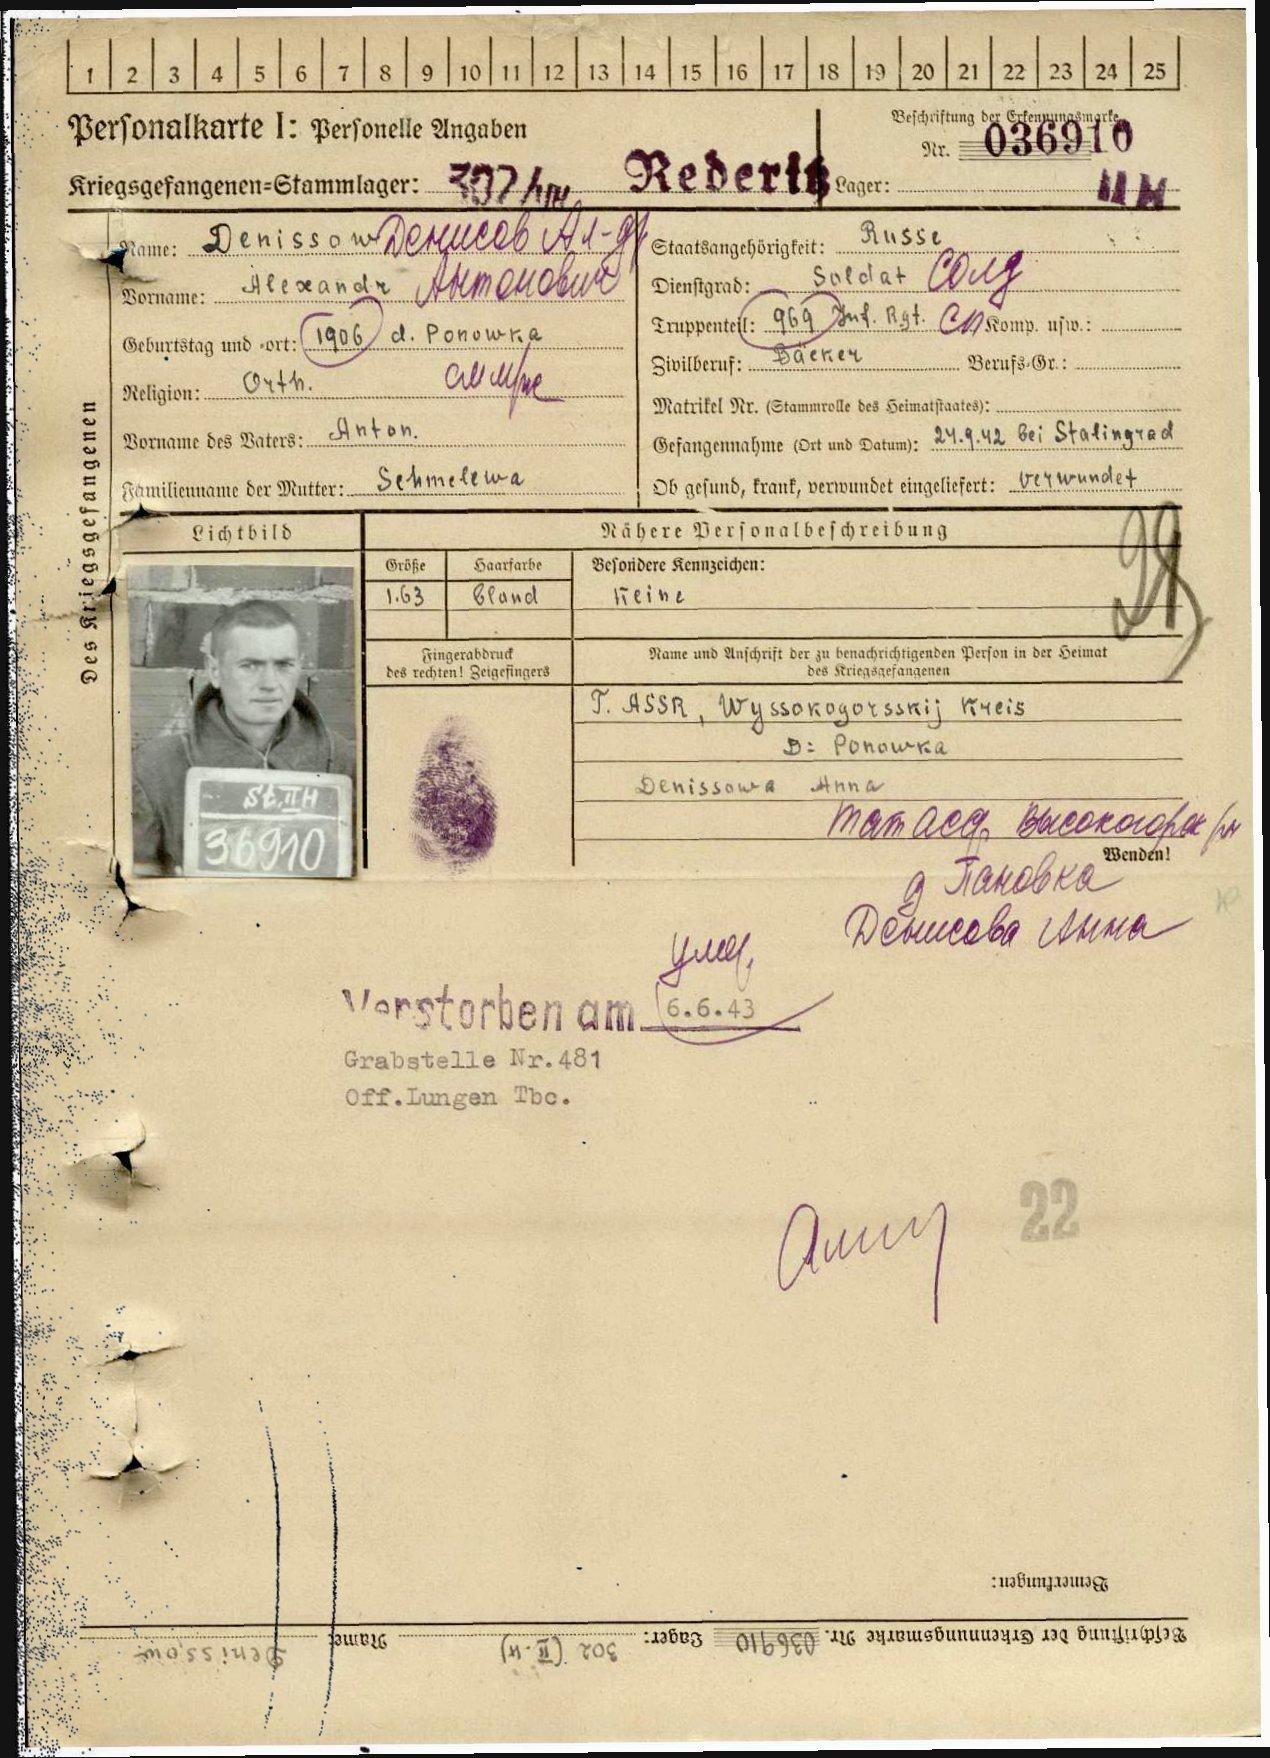 1 2 3 4 5 6 7 8 9 10 11 12 13 14 15 16 17 18 19 20 21 22 23 24 25
Personalkarte I: Personelle Angaben
Beschriftung der Erkennungsmarke
Nr. 036910
Kriegsgefangenen-Stammlager: Rederitz Lager: II H
Des Kriegsgefangenen
Name: Denissow Денисов Ал-др
Vorname: Alexandr Антонович
Geburtstag und -ort: 1906 d. Ponowka
Religion: Orth.
Vorname des Vaters: Anton.
Familienname der Mutter: Schmelewa
Staatsangehörigkeit: Russe
Dienstgrad: Soldat солд
Truppenteil: 969 Inf. Rgt. сп Komp. usw.:
Zivilberuf: Bäcker Berufs-Gr.:
Matrikel Nr. (Stammrolle des Heimatstaates):
Gefangennahme (Ort und Datum): 24.9.42 bei Stalingrad
Ob gesund, krank, verwundet eingeliefert: verwundet
Lichtbild
Nähere Personalbeschreibung
Größe Haarfarbe Besondere Kennzeichen:
1.63 bland Keine
Fingerabdruck
des rechten! Zeigefingers
Name und Anschrift der zu benachrichtigenden Person in der Heimat
des Kriegsgefangenen
T. ASSR, Wyssokogorsskij Kreis
D: Ponowka
Denissowa Anna
St. II H
36910
Тат асср, Высокогорск р/н
Wenden!
д Пановка
Денисова Анна
умер,
Verstorben am 6.6.43
Grabstelle Nr.481
Off.Lungen Tbc.
22
Bemerkungen:
Beschriftung der Erkennungsmarke Nr. 036910 Lager: 302 (II.H) Name: Denissow